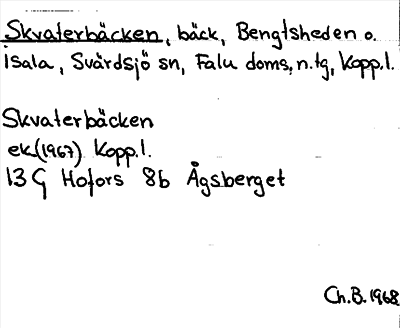 Skvaterbäcken, bäck, Bengtsheden o.
Isala, Svärdsjö sn, Falu doms. n. tg, Kopp. l.
Skvaterbäcken
ek.(1967) Kopp. l.
13 G Hofors 8b Ågsberget
Ch. B. 1968